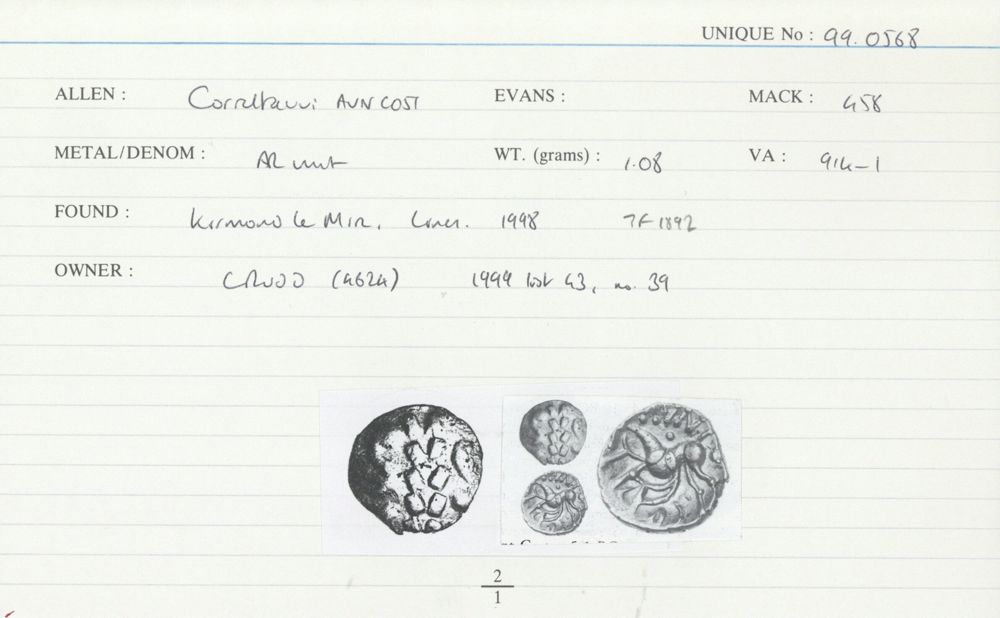 UNIQUE No : 99.0568
ALLEN : Corieltauvi AVN COST EVANS : MACK : 458
METAL/DENOM : AR unit WT. (grams) : 1.08 VA : 914-1
FOUND : Kirmond le Mire, Lincs. 1998 TF 1892
OWNER : CNWDD (4624) 1999 list 43, no. 39
2
1